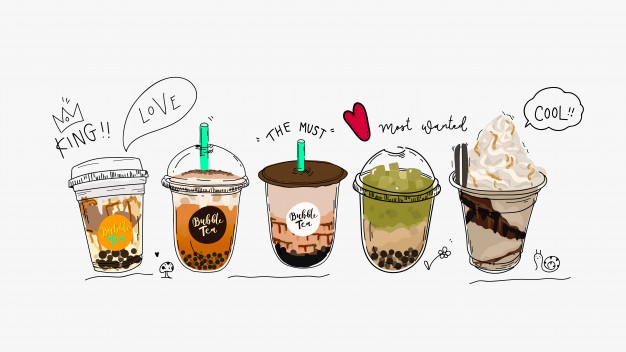 KING!!
LOVE
"THE MUST"
Most Wanted
COOL!!
Bubble
Tea
Bubble
Tea
Bubble
Tea